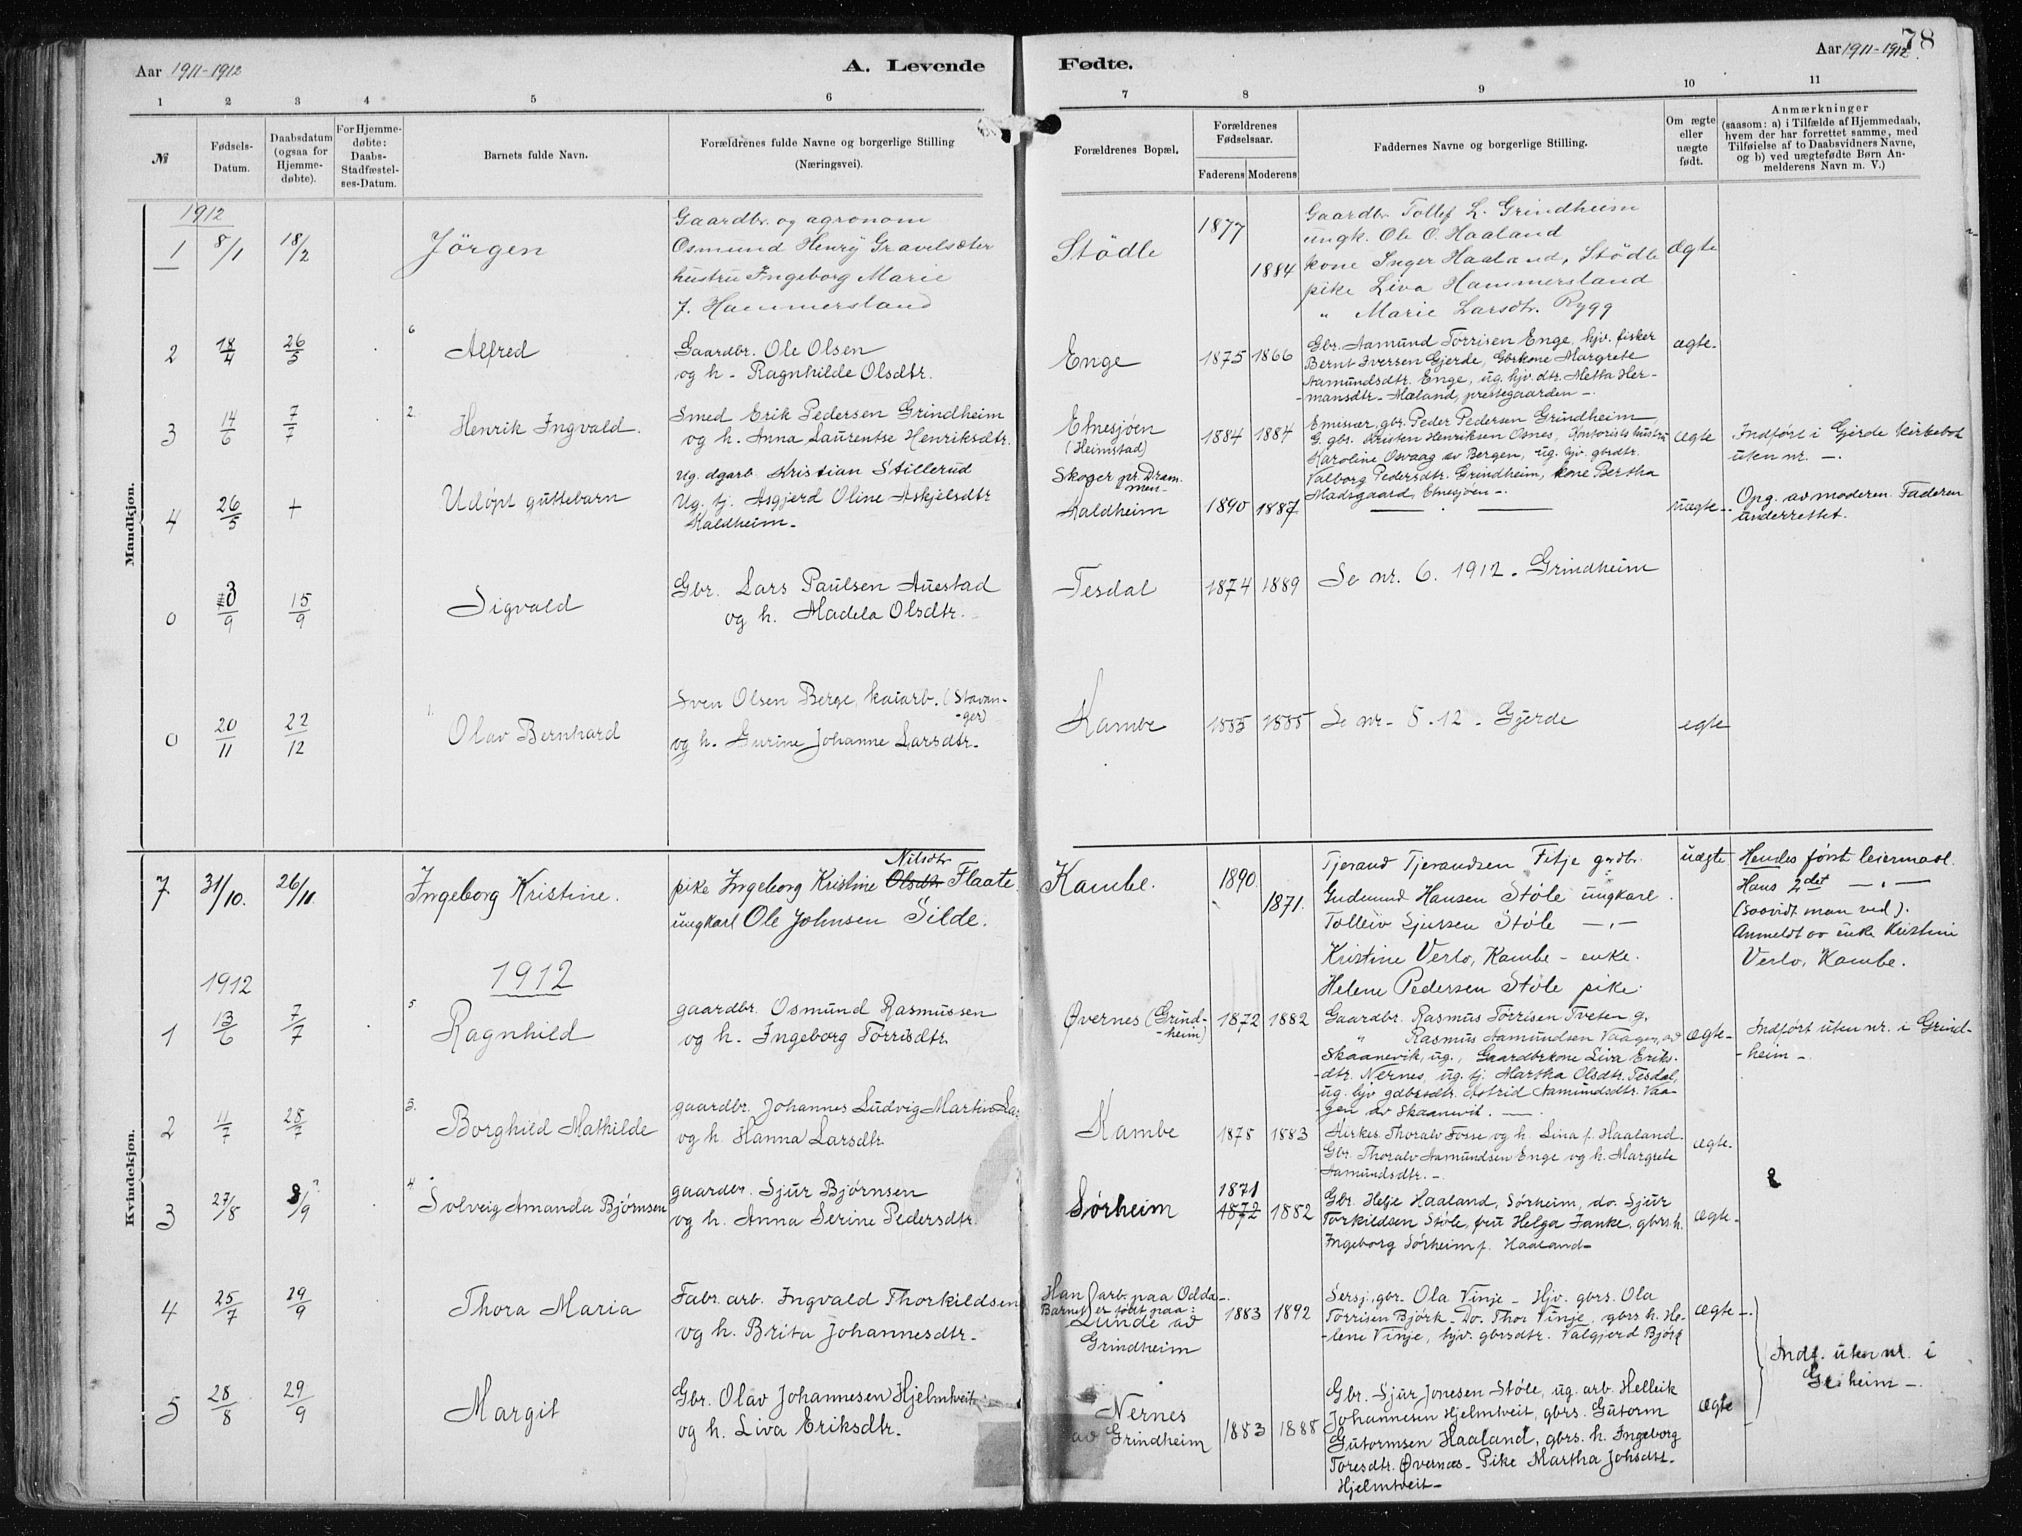 78
Aar 1911-1912
A. Levende
Fødte.
Aar 1911-1912.
1 2 3 4 5 6 7 8 9 10 11
№
Fødsels-
Datum.
Daabsdatum
(ogsaa for
Hjemme-
døbte).
For Hjemme-
døbte:
Daabs-
Stadfæstel-
ses-Datum.
Barnets fulde Navn.
Forældrenes fulde Navne og borgerlige Stilling
(Næringsvei).
Forældrenes Bopæl.
Forældrenes
Fødselsaar.
Faderens Moderens
Faddernes Navne og borgerlige Stilling.
Om ægte
eller
uægte
født.
Anmærkninger
(saasom: a) i Tilfælde af Hjemmedaab,
hvem der har forrettet samme, med
Tilføielse af to Daabsvidners Navne,
og b) ved uægtefødte Børn An-
melderens Navn m. V.)
Mandkjøn.
1912
1 8/1 18/2 Jörgen
Gaardbr. og agronom
Osmund Henry Gravelsæter
hustru Ingeborg Marie
f. Hammersland
Stödle
1877
1884
Gaardbr Tollef L. Grindheim
ungk. Ole O. Haaland
kone Inger Haaland, Stödle
pike Liva Hammersland
" Marie Larsdtr. Rygg
Ægte
2 18/4 26/5 6 Alfred
Gaardbr. Ole Olsen
og h. Ragnhilde Olsdtr.
Enge
1875 1866
Gbr. Aamund Torrisen Enge, hjv. fisker
Bernt Iversen Gjerde, Gbrkone Margrete
Aamundsdtr. Enge, ug. hjv. dtr. Metta Her-
mansdtr. Mæland, prestegaarden -.
ægte.
3 14/6 7/7 2. Henrik Ingvald.
Smed Erik Pedersen Grindheim
og h. Anna Laurentse Henriksdtr.
Etnesjøen
(Heimstad)
1884 1884
Emissær, gbr. Peder Pedersen Grindheim,
G. gbs. Kristen Henriksen Osnes, Kontorists hustru
Karoline Osvaag av Bergen, ug. hjv. gbrdtr.
Valborg Pedersdtr. Grindheim, kone Bertha
Madsgaard, Etnesjøen -.
ægte
Indført i Gjerde kirkebok
uten nr. -.
4 26/5 + Udöpt guttebarn
Ug. dgarb. Kristian Stillerud
Ug. tj. Asgjerd Oline Askjelsdtr
Kaldheim.
Skoger pr. Dram-
men-
Kaldheim
1890 1887
uægte-.
Opg. av moderen. Faderen
underrettet.
0 3/9 15/9 Sigvald
Gbr. Lars Paulsen Auestad
og h. Madela Olsdtr.
Tesdal
1874 1889
Se nr. 6. 1912. Grindheim
0 20/11 22/12 1. Olav Bernhard
Sven Olsen Berge, kaiarb. (Stavan-
-ger)
og h. Gurine Johanne Larsdtr.
Kambe
1885 1885
Se nr. 5. 12. Gjerde
egte
Kvindekjøn.
7. 31/10. 26/11. Ingeborg Kristine.
Nilsdtr
pike Ingeborg Kristine Olsdtr Flaate.
ungkarl Ole Johnsen Silde.
Kambe.
1890.
1871.
Tjerand Tjerandsen Fitje grdbr.
Gudmund Hansen Støle ungkarl.
Tolleiv Sjursen Støle -"-
Kristine Verlo, Kambe - enke.
Helene Pedersen Støle pike.
uægte
Hendes først leiermaal.
Hans 2det -"-
(saavidt man ved).
Anmeldt av enke Kristine
Verlo, Kambe.
1912
1912
1 13/6 7/7 5 Ragnhild
gaardbr. Osmund Rasmussen
og h. Ingeborg Torrisdtr.
Øvernes (Grind-
-heim)
1872 1882
Gaardbr. Rasmus Torrisen Tveten g.
" Rasmus Aamundsen Vaagen, av
Skaanevik, ug., Gaardbrkone Liva Eriks-
-dtr. Nernes, ug. tj. Martha Olsdtr. Tesdal,
ug. hjv gdbrsdtr. Astrid Aamundsdtr. Vaa-
-gen av Skaanevik. -
ægte-
Indført uten nr. i Grind-
-heim-.
2 11/7 28/7 3. Borghild Mathilde
gaardbr. Johannes Ludvig Martin
og h. Hanna Larsdtr.
Kambe
1878 1883
Kirkes. Thoralv Fosse og h. Lina f. Haaland.
Gbr. Thoralv Aamundsen Enge og h. Margrete
Aamundsdtr. -.
ægte.
3 27/8 8/9 4. Solveig Amanda Bjørnsen
gaardbr. Sjur Bjørnsen
og h. Anna Serine Pedersdtr.
Sørheim
1871
1872 1882
Gbr. Helje Haaland, Sørheim, do. Sjur
Torkildsen Støle, fru Helga Janke, gbrs h.
Ingeborg Sørheim f. Haaland-
ægte-
4 25/7 29/9 Thora Maria
Fabr. arb. Ingvald Thorkildsen
og h. Brita Johannesdtr.
Han arb. paa Odda-.
Barnet er født paa:
Lunde av
Grindheim
1883 1892
Sersj. gbr. Ola Vinje - Hjv. gbrs. Ola
Torrisen Bjørk. Do. Thor Vinje, gbrs h. He-
-lene Vinje, hjv. gbrsdtr. Valgjerd Bjørk
ægte-.
5 28/8 29/9 Margit
Gbr. Olav Johannesen Hjelmtveit
og h. Liva Eriksdtr.
Nernes
av Grindheim
1883 1888
Gbr. Sjur Jonesen Støle, ug. arb. Helleik
Johannesen Hjelmtveit, gbrs. Gutorm
Gutormsen Haaland, gbrs. h. Ingeborg
Toresdtr. Øvernes- Pike Martha Johsdtr.
Hjelmtveit-
ægte
Indf. uten nr. i
Gr. heim-.